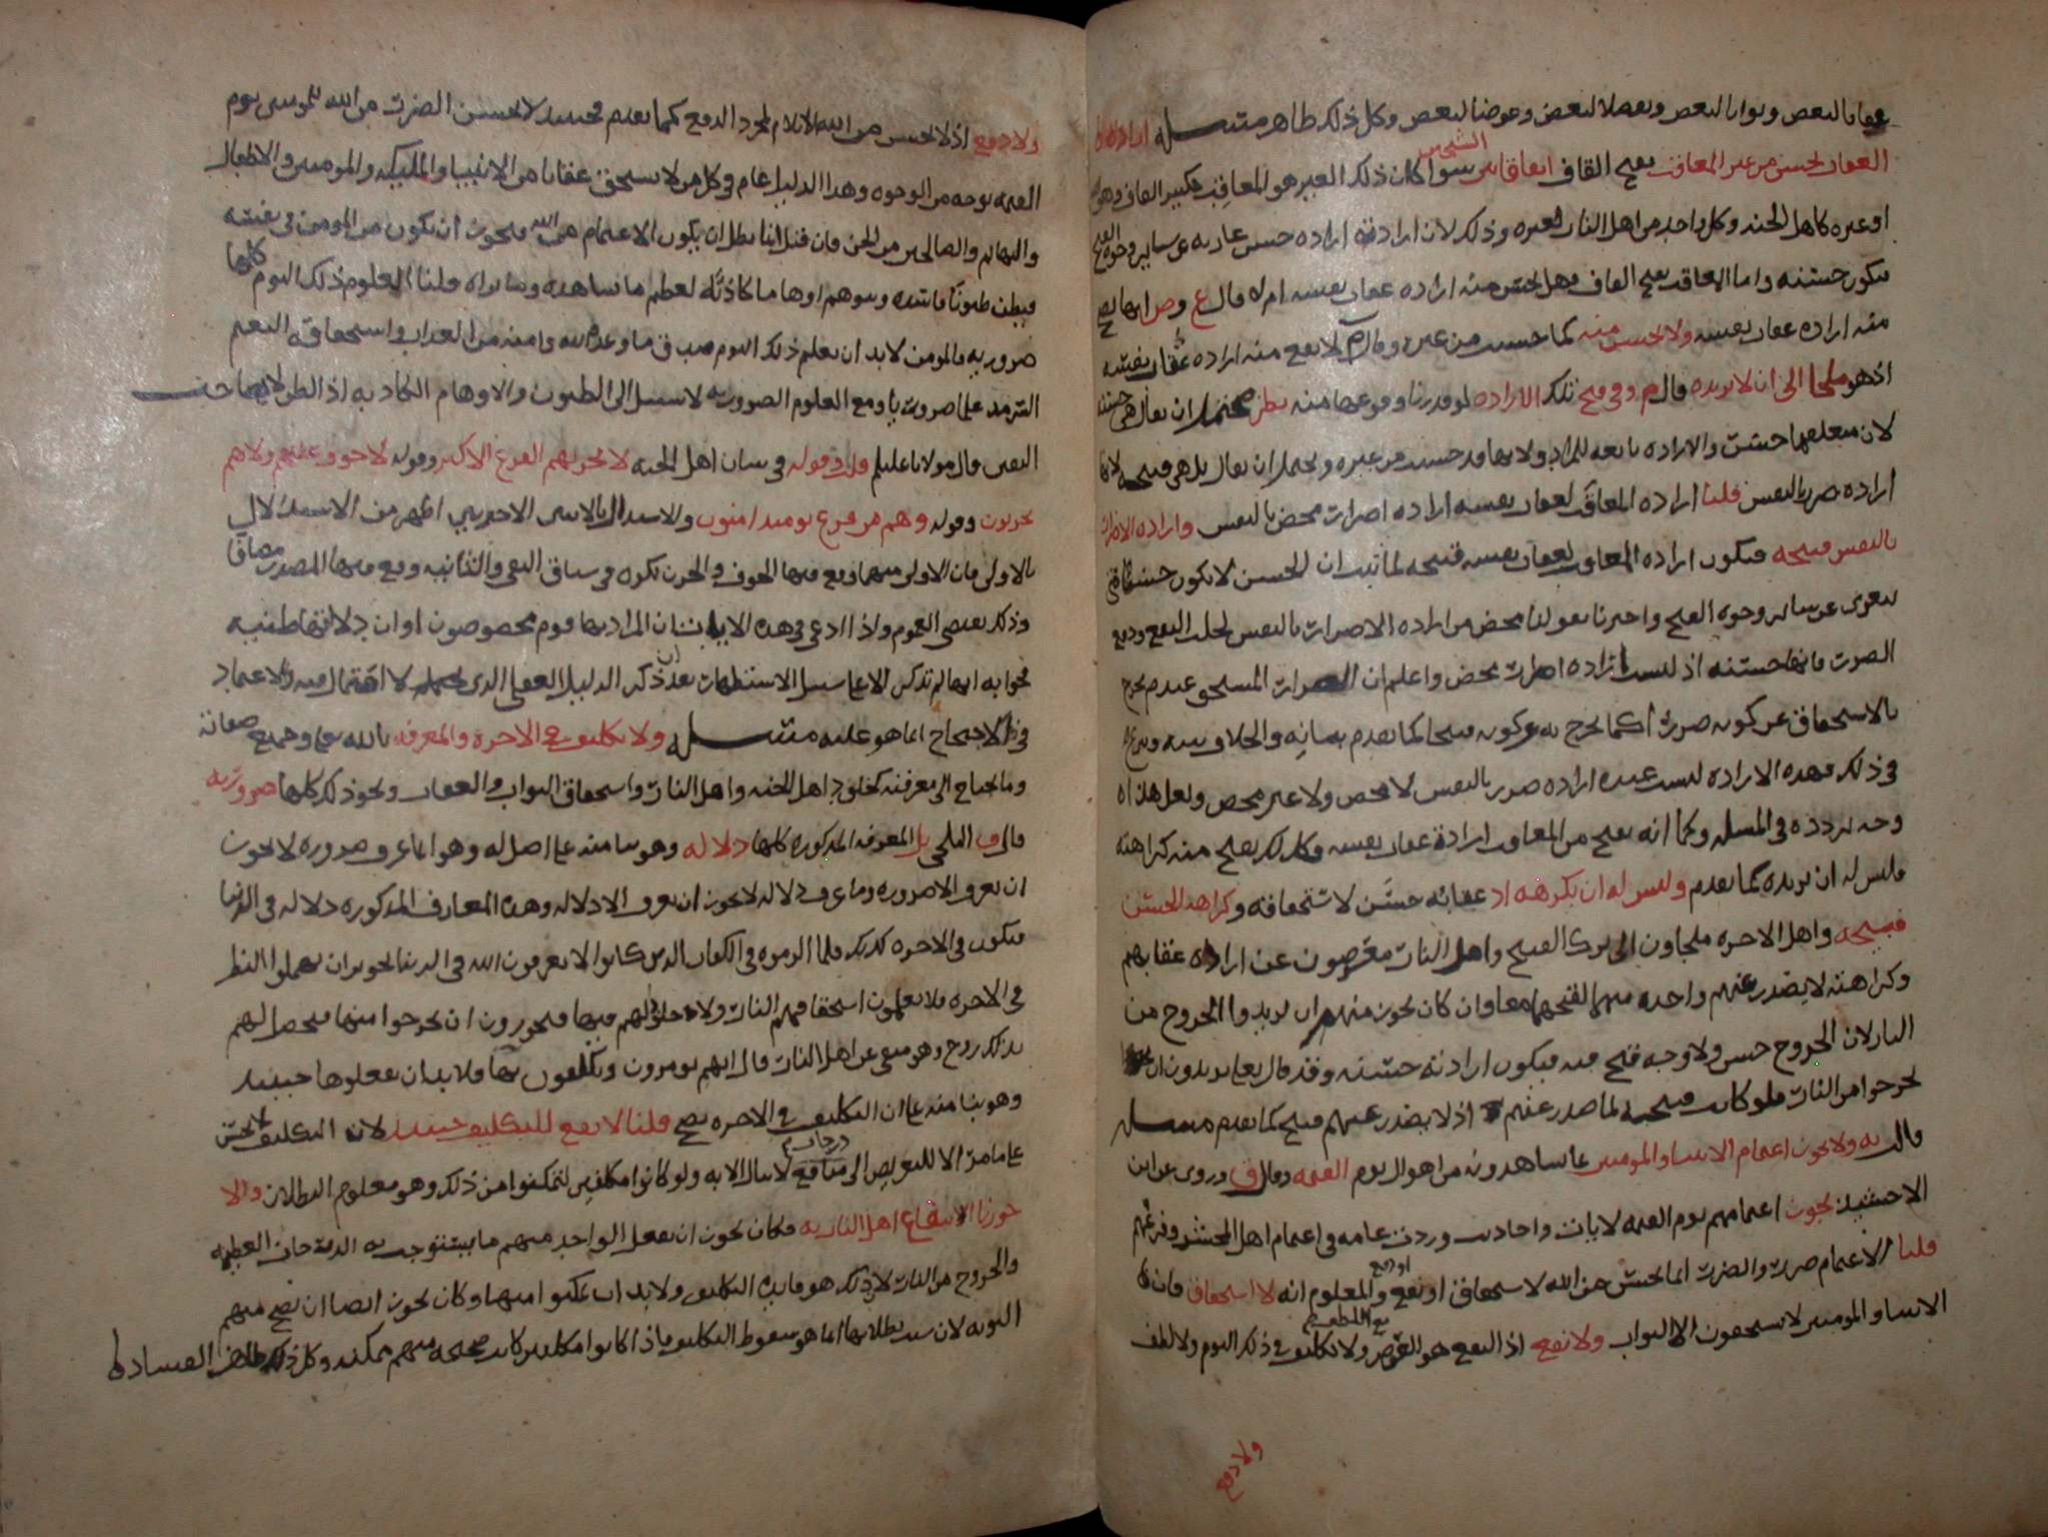 عقابا لبعض وثوابا لبعض وتفضلا لبعض وعوضا لبعض وكل ذلك ظاهر مسئلة ارادة
العقاب تحسن من غير المعاقب بفتح القاف اتفاق بين الشيخين سوا كان ذلك الغير هو المعاقِب بكسر القاف وهو
او غيره كاهل الجنة وكل واحد من اهل النار لغيره وذلك لان ارادته ارادة حسن عارية عن ساير وجوه القبح
فتكون حسنة واما المعاقب بفتح القاف فهل تحسن منه ارادة عقاب نفسه ام لا قال ع وص انها تصح
منه ارادة عقاب نفسه ولا تحسن منه كما حسنت من غيره وقال لا تصح منه ارادة عقاب نفسه
اذ هو ملجا الى ان لا يريده قال م وفي قبح تلك الارادة لو قدرنا وقوعها منه نظر يحتمل ان يقال هي حسنة
لان متعلقها حسن والارادة تابعة للمراد ولانها قد حسنت من غيره ويحتمل ان يقال بل هي قبيحة لانها
ارادة ضرر بالنفس قلنا ارادة المعاقَب لعقاب نفسه ارادة اضرار محض بالنفس وارادة الاضرار
بالنفس قبيحة فتكون ارادة المعاقب لعقاب نفسه قبيحة لما ثبت ان الحسن لا يكون حسنا حتى
يتعرى عن ساير وجوه القبح واحترزنا بقولنا محض من ارادة الاضرار بالنفس لجلب النفع ودفع
الضرر فانها حسنة اذ ليست ارادة اضرار محض واعلم ان المضرات المستحق عندهم يخرج
بالاستحقاق عن كونه ضررا كما يخرج به عن كونه قبيحا كما تقدم بيانه والخلاف فيه
في ذلك فهذه الارادة ليست عنده ارادة ضرر بالنفس لا محض ولا غير محض ولعل هذا
وجه تردده في المسئلة وكما انه يقبح من المعاقب ارادة عقاب نفسه فكذلك يقبح منه كراهته
وليس له ان يريده كما تقدم وليس له ان يكرهه اذ عقابه حسَن لاستحقاقه وكراهة الحسن
قبيحة واهل الاخرة ملجاون الى ترك القبيح واهل النار معرضون عن ارادة عقابهم
وكراهته لا يصدر عنهم واحدة منهما لقبحهما معا وان كان يجوز منهم ان يريدوا الخروج من
النار لان الخروج حسن ولا وجه قبح فيه فيكون ارادته حسنة وقد قال تعالى يريدون ان
يخرجوا من النار فلو كانت قبيحة لما صدر عنهم اذ لا يصدر عنهم قبيح كما تقدم مسئلة
قال ولا يجوز اغتمام الانبيا والمومنين بما يشاهدونه من اهوال يوم القيمة وقال ق وروي عن ابن
الاخشيد يجوز اغتمامهم يوم القيمة لايات واحاديث وردت عامة في اغتمام اهل المحشر وفزعهم
قلنا الاغتمام ضرر والضرر انما يحسن من الله لاستحقاق او نفع او دفع والمعلوم انه لا استحقاق فان
الانبيا والمومنين لا يستحقون الا الثواب ولا نفع اذ النفع هو العوض مع اللطف ولا تكليف في ذلك اليوم ولا لطف
ولا دفع
ولا دفع اذ لا يحسن من الله الايلام لمجرد الدفع كما تقدم فحينئذ لا يحسن الضرر من الله للمومنين يوم
القيمة بوجه من الوجوه وهذا الدليل عام في كل من لا يستحق عقابا من الانبيا والمليكة والمومنين والاطفال
والبهايم والصالحين من الجن فان قيل انا نبطل ان يكون الاغتمام من الله فيجوز ان يكون من المومن في نفسه
فيظن ظنونا فاسدة ويتوهم اوهاما كاذبة لعظم ما يشاهده وما يراه قلنا العلوم ذلك اليوم كلها
ضرورية فالمومن لا بد ان يعلم ذلك اليوم صدق ما وعده الله وامنه من العذاب واستحقاقه النعيم
السرمد علما ضروريا ومع العلوم الضرورية لا سبيل الى الظنون والاوهام الكاذبة اذ الظن لا يجامع
اليقين قال مولانا عليلم قلت وقوله في بيان اهل الجنة لا يحزنهم الفزع الاكبر وقوله لا خوف عليهم ولا هم
يحزنون وقوله وهم من فزع يومئذ امنون والاستدلال بالايتين الاخيرتين اظهر من الاستدلال
بالاولى فان الاولى منهما وقع فيها الخوف والحزن نكرة في سياق النفي والثانية وقع فيها المصدر مضافا
وذلك يقتضي العموم واذا ادعي في هذه الايات ان المراد بها قوم مخصوصون او ان دلالتها ظنية
فجوابه انها لم تذكر الا على سبيل الاستظهار بعد ان ذكر الدليل العقلي الذي لا احتمال فيه والاعتماد
في الاحتجاج انما هو عليه مسئلة ولا تكليف في الاخرة والمعرفة بالله تعالى وجميع صفاته
وما يحتاج الى معرفته كخلود اهل الجنة واهل النار واستحقاق الثواب والعقاب ونحو ذلك كلها ضرورية
قال ق البلخي بل المعرفة المذكورة كلها دلالة وهو بنا منه على اصل له وهو ان ما عرف ضرورة لا يجوز
ان يعرف الا ضرورة وما عرف دلالة لا يجوز ان يعرف الا دلالة وهذه المعارف المذكورة دلالة في الدنيا
فتكون في الاخرة كذلك فلما الزموه في الكفار الذين كانوا لا يعرفون الله في الدنيا تجويز ان يهملوا النظر
في الاخرة فلا يعلمون استحقاقهم النار ولا خلودهم فيها فيجوزون ان يخرجوا منها فيحصل لهم
بذلك روح وهو منفي عن اهل النار قال انهم يومرون ويكلفون بها فلا بد ان يفعلوها حينئذ
وهو بنا منه على ان التكليف في الاخرة يصح قلنا لا نفع للتكليف حينئذ لانه التكليف لا يحسن
على ما مر الا للتعريض الى منافع درجات لا تنال الا به ولو كانوا مكلفين لتمكنوا من ذلك وهو معلوم البطلان والا
جوزنا انتفاع اهل النار به فكان يجوز ان يفعل الواحد منهم ما يستوجب به الدرجات العظيمة
والخروج من النار لان ذلك هو فايدة التكليف ولا بد ان يمكنوا منها وكان يجوز ايضا ان تصح منهم
التوبة لان سبب بطلانها انما هو سقوط التكليف فاذا كانوا مكلفين كانت صحيحة منهم ممكنة وكل ذلك ظاهر الفساد